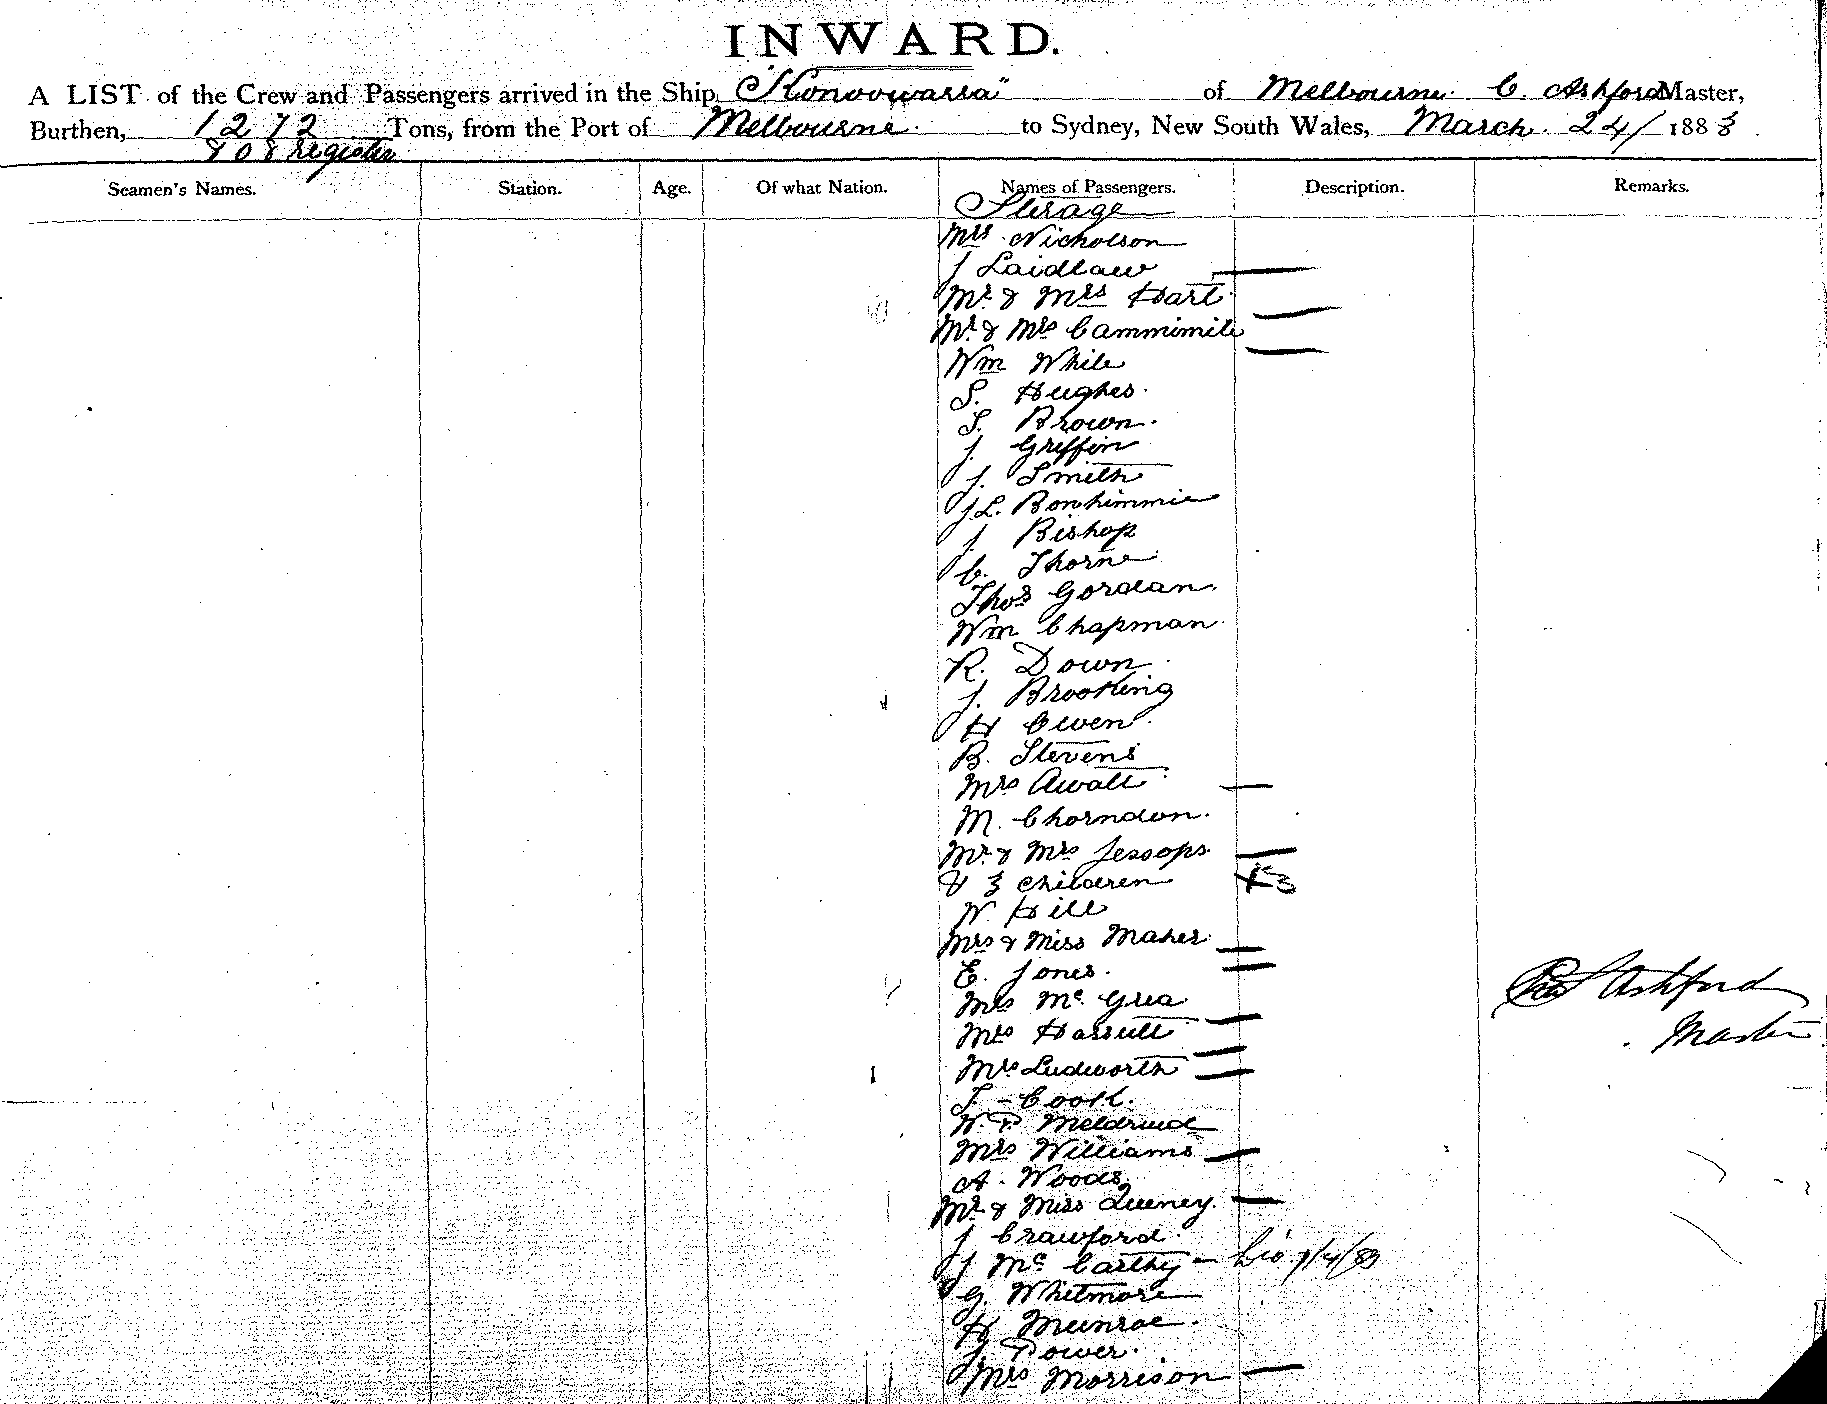 INWARD.
A LIST of the Crew and Passengers arrived in the Ship "Konoowarra" of Melbourne C. Ashford Master,
Burthen, 1272 Tons, from the Port of Melbourne. to Sydney, New South Wales, March. 24/ 1883
808 register
Seamen's Names. Station. Age. Of what Nation. Names of Passengers. Description. Remarks.
Sterage
Mrs. Nicholson
J Laidlaw
Mr. & Mrs Hart.
Mr. & Mrs
Wm White
S. Hughes.
S. Brown.
J. Griffin
J. Smith
J L.
J Bishop
C. Thorne
Thos Gordan.
Wm Chapman.
R. Down.
J. Brooking
H Owen.
B. Stevens
Mrs Awatt
M. Chorndon.
Mr. & Mrs Jessops
& 3 children 3
W. Hill
Mrs & Miss Maher.
E. Jones.
Mrs Mc Grea
Mrs
Mrs Ludworth
T - Cook.
W. P
Mrs Williams
A. Woods
Mr. & Miss Queney.
J Crawford.
J Mc Carthy -
G. Whitmore
H Munroe.
J Power.
Mrs Morrison
Chas Ashford
Master